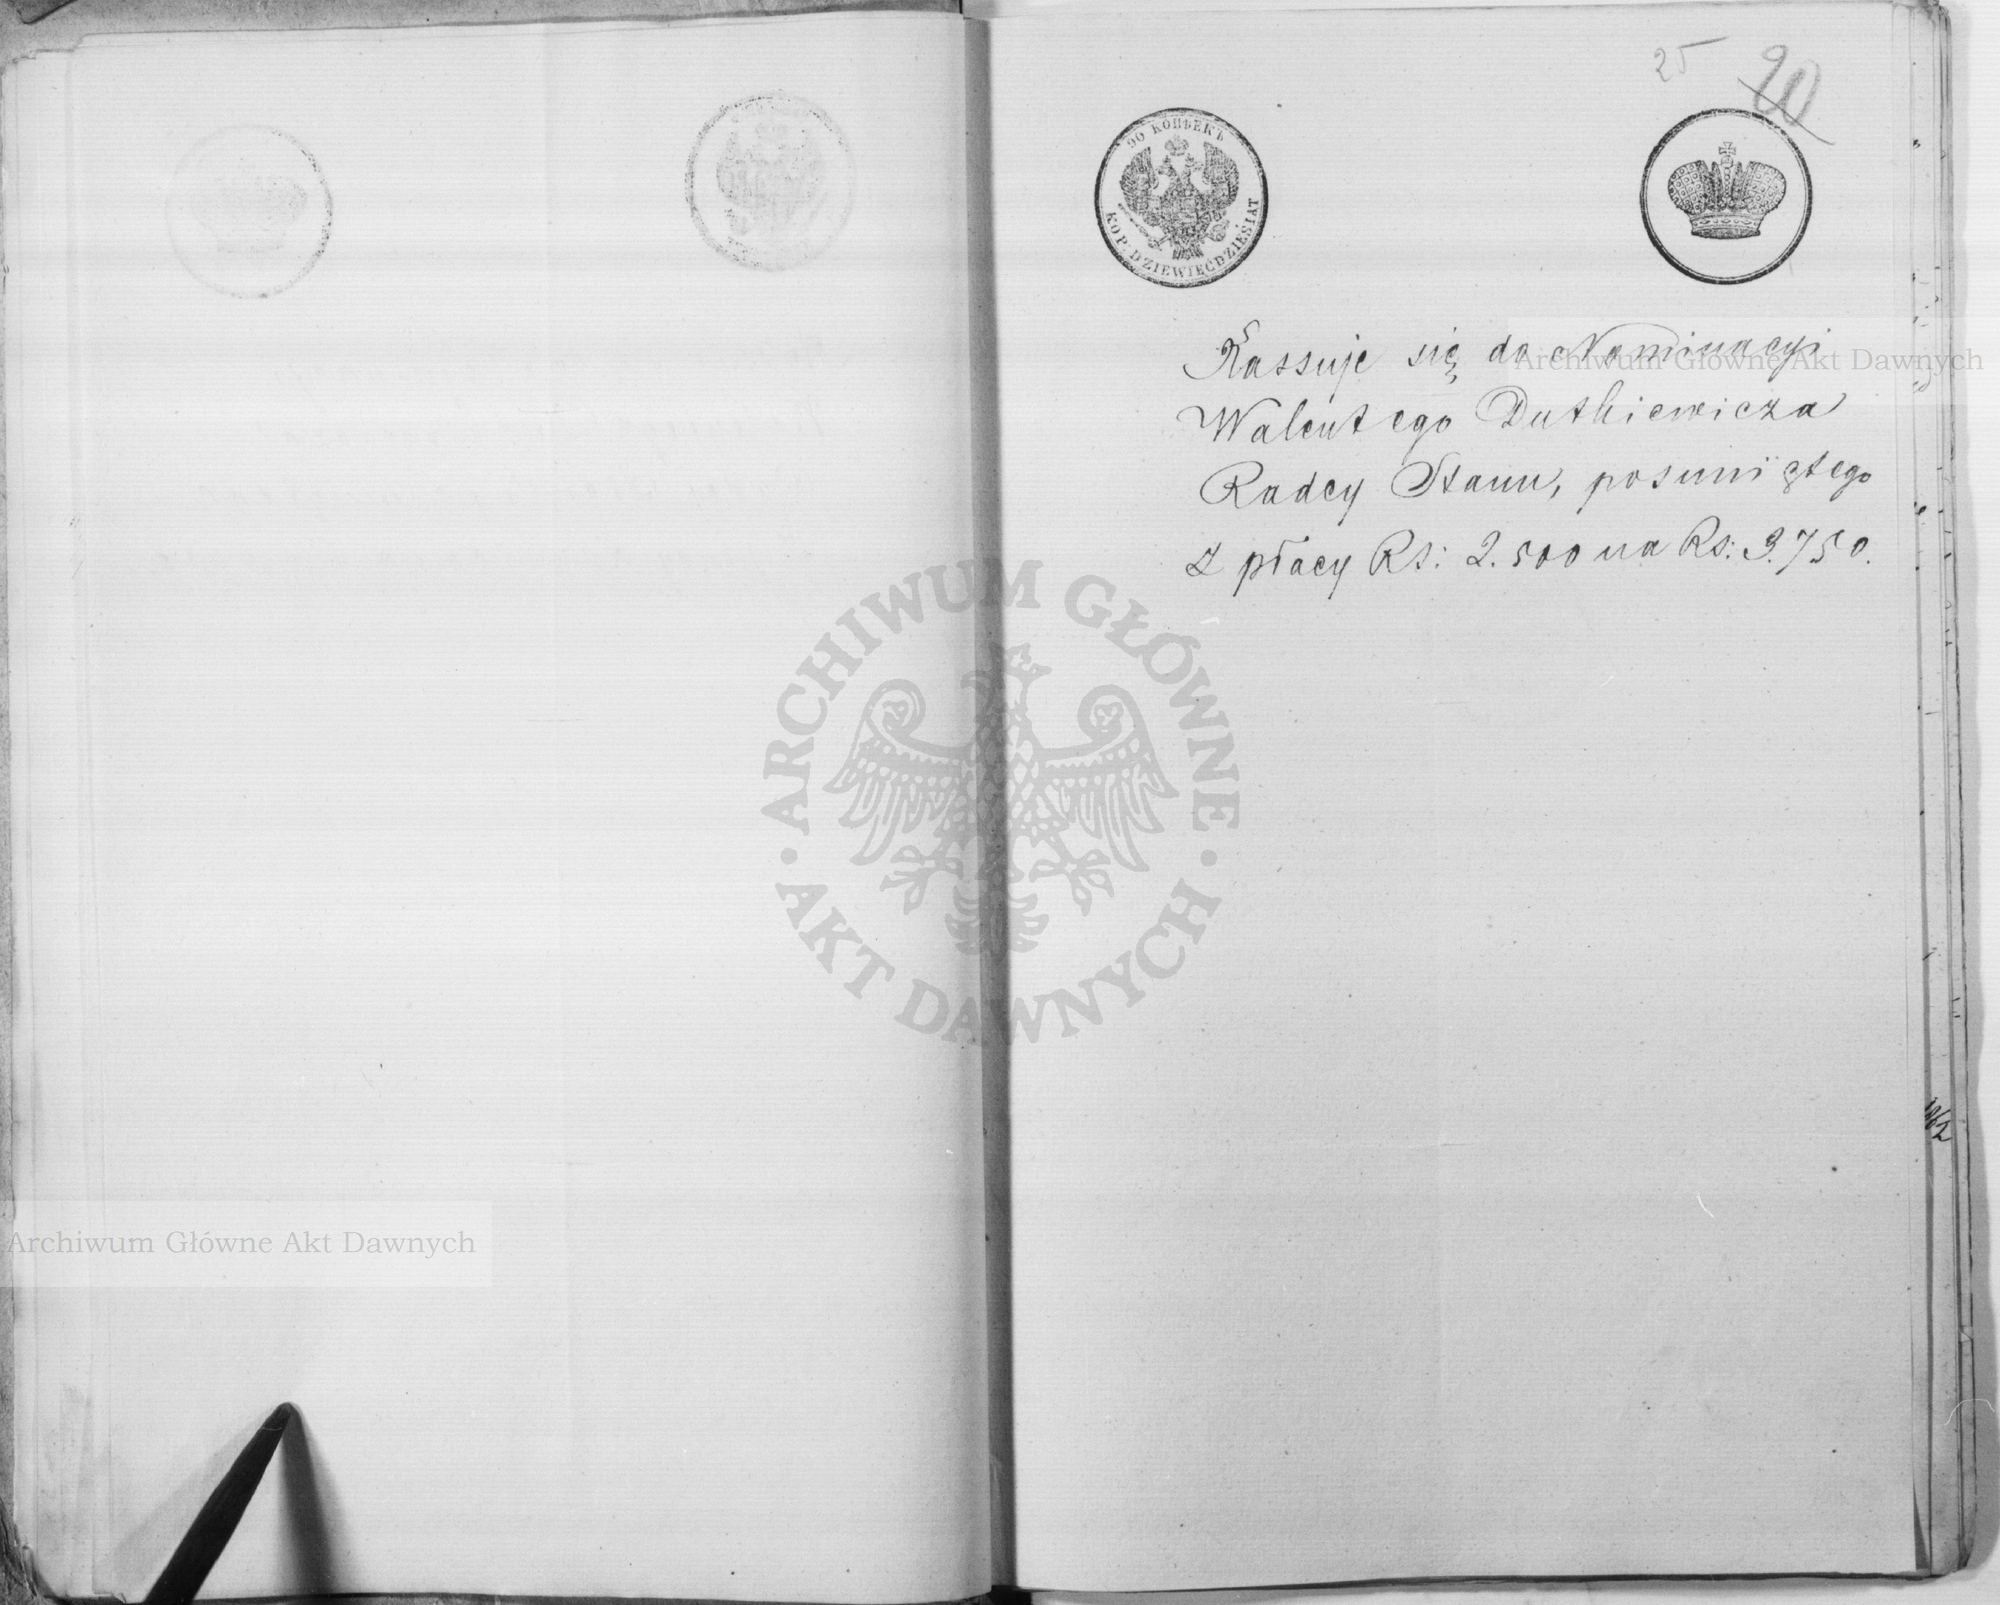 25 20
90 КОПѢЕКЪ
KOP. DZIEWIĘĆDZIESIAT
Kassuje się do Nominacyi
Walentego Dutkiewicza
Radcy Stanu, posuniętego
z płacy Rs: 2.500 na Rs: 3.750.
ARCHIWUM GŁÓWNE
AKT DAWNYCH
Archiwum Główne Akt Dawnych
Archiwum Główne Akt Dawnych